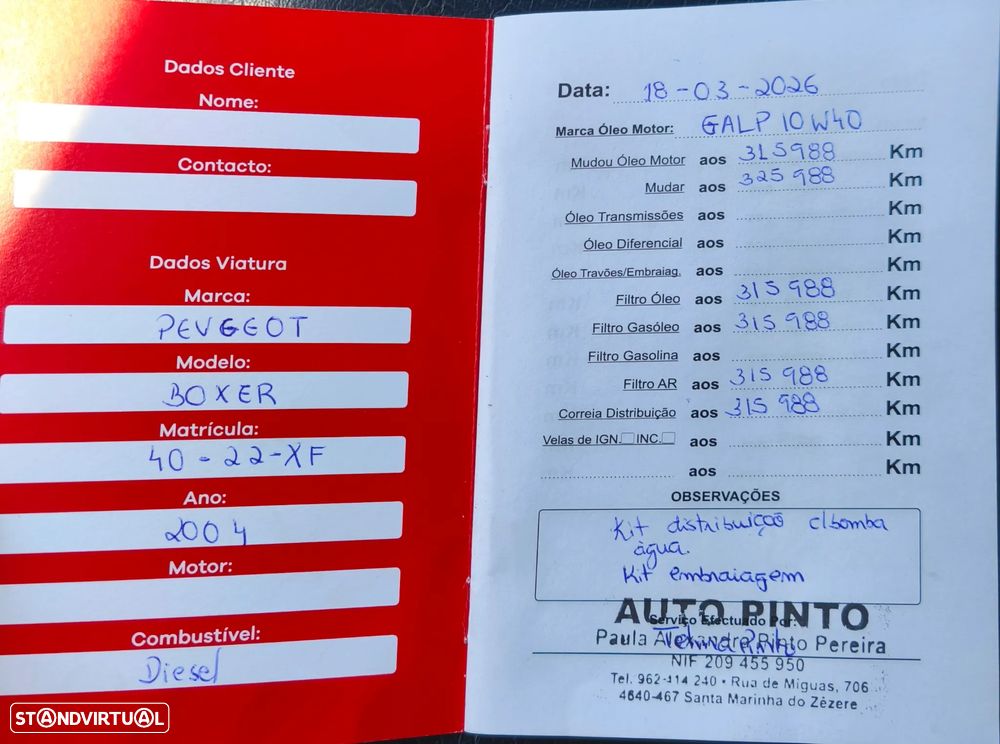 Dados Cliente
Nome:
Contacto:
Dados Viatura
Marca:
PEUGEOT
Modelo:
BOXER
Matrícula:
40-22-XF
Ano:
2004
Motor:
Combustível:
Diesel
STANDVIRTUAL
Data: 18-03-2026
Marca Óleo Motor: GALP 10W40
Mudou Óleo Motor aos 315988 Km
Mudar aos 325988 Km
Óleo Transmissões aos Km
Óleo Diferencial aos Km
Óleo Travões/Embraiag. aos Km
Filtro Óleo aos 315988 Km
Filtro Gasóleo aos 315988 Km
Filtro Gasolina aos Km
Filtro AR aos 315988 Km
Correia Distribuição aos 315988 Km
Velas de IGN. INC. aos Km
aos Km
OBSERVAÇÕES
Kit distribuição c/bomba
água.
Kit embraiagem
AUTO PINTO
Serviço Efectuado Por:
Paula Alexandre Pinto Pereira
NIF 209 455 950
Tel. 962-414 240 • Rua de Miguas, 706
4640-467 Santa Marinha do Zêzere